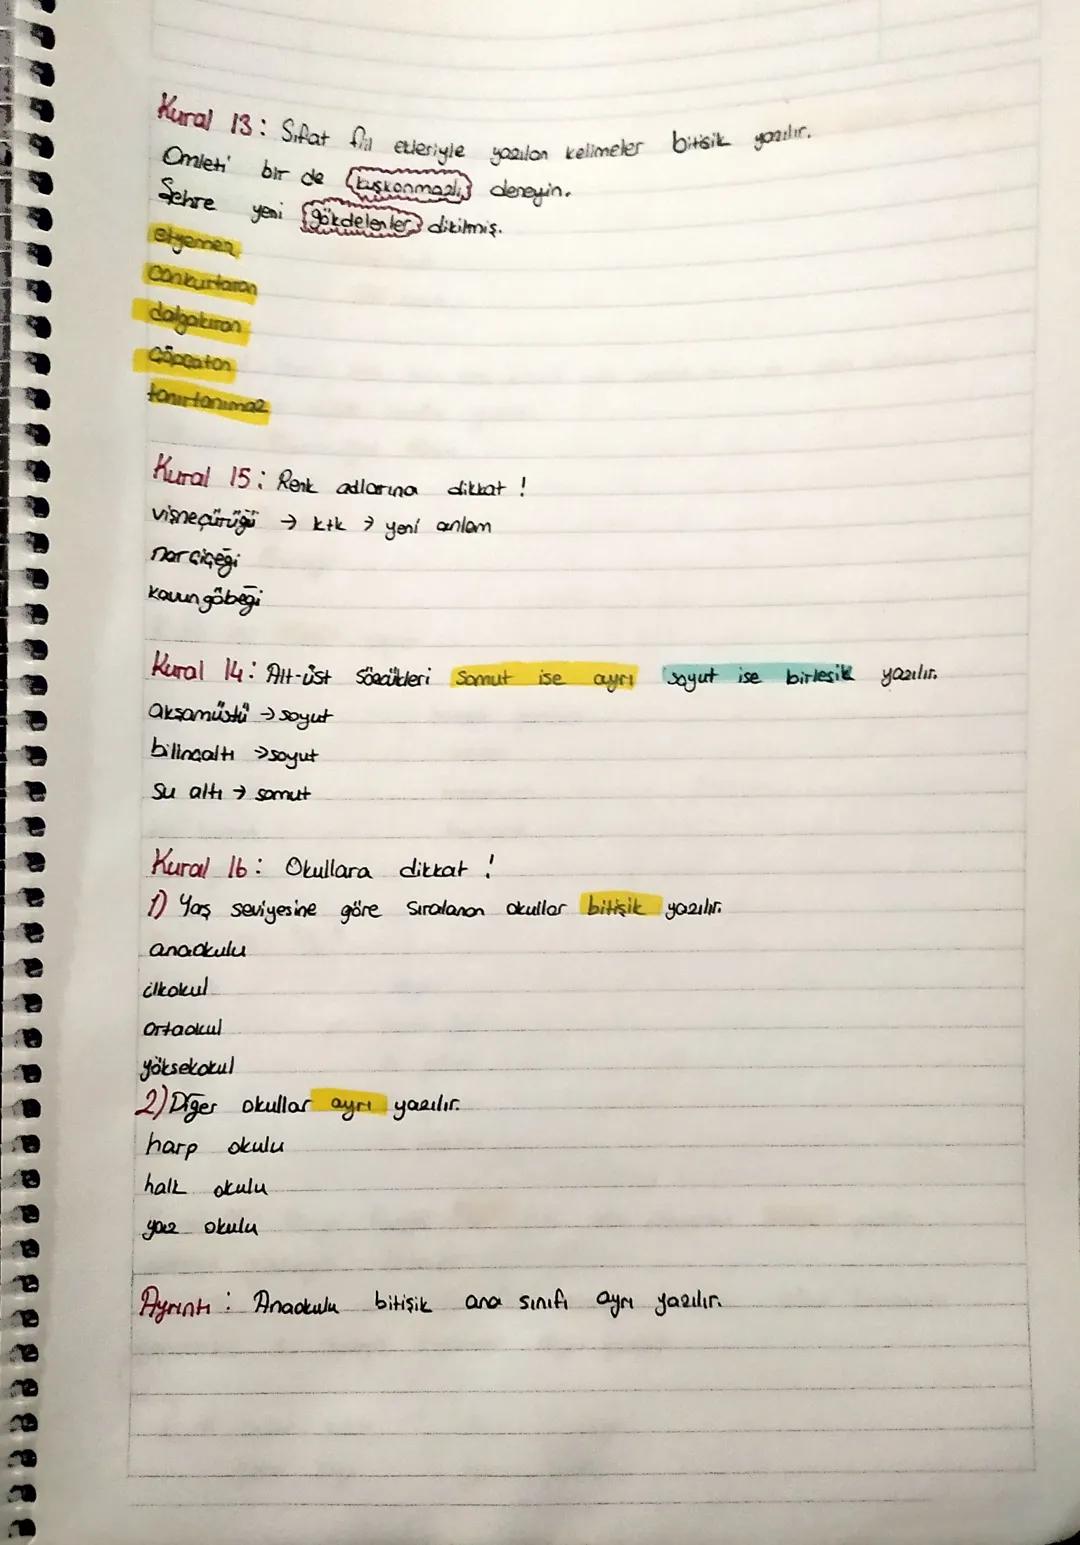 Kural 13: Sıfat fiil ekleriyle yazılan kelimeler bitişik yazılır.
Omleti bir de kuşkonmazlı deneyin.
Şehre yeni gökdelenler dikilmiş.
etyemez
cankurtaran
dalgakıran
çöpçatan
tanırtanımaz
Kural 15: Renk adlarına dikkat!
vişneçürüğü → k+k → yeni anlam
narçiçeği
kavungöbeği
Kural 14: Alt-üst sözcükleri somut ise ayrı soyut ise birleşik yazılır.
akşamüstü → soyut
bilinçaltı → soyut
su altı → somut
Kural 16: Okullara dikkat!
1) Yaş seviyesine göre sıralanan okullar bitişik yazılır.
anaokulu
ilkokul
ortaokul
yüksekokul
2) Diğer okullar ayrı yazılır.
harp okulu
halk okulu
yaz okulu
Ayrıntı: Anaokulu bitişik ana sınıfı ayrı yazılır.